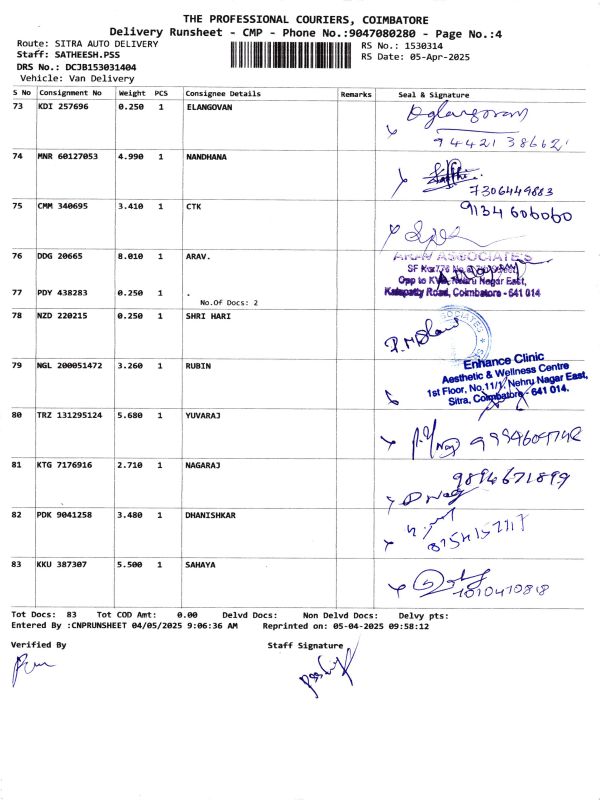 THE PROFESSIONAL COURIERS, COIMBATORE
Delivery Runsheet - CMP - Phone No.:9047080280 - Page No.:4
Route: SITRA AUTO DELIVERY RS No.: 1530314
Staff: SATHEESH.PSS RS Date: 05-Apr-2025
DRS No.: DCJB153031404
Vehicle: Van Delivery
S No Consignment No Weight PCS Consignee Details Remarks Seal & Signature
73 KDI 257696 0.250 1 ELANGOVAN
94421 38662
74 MNR 60127053 4.990 1 NANDHANA
7306449883
75 CMM 340695 3.410 1 CTK 9134606060
76 DDG 20665 8.010 1 ARAV. ASSOCIATES
Opp to Nehru Nagar East,
77 PDY 438283 0.250 1 . Kalapatty Road, Coimbatore - 641 014
No.Of Docs: 2
78 NZD 220215 0.250 1 SHRI HARI
79 NGL 200051472 3.260 1 RUBIN
Enhance Clinic
Aesthetic & Wellness Centre
1st Floor, No.11/1, Nehru Nagar East,
Sitra, Coimbatore - 641 014.
80 TRZ 131295124 5.680 1 YUVARAJ
81 KTG 7176916 2.710 1 NAGARAJ 9894671899
82 PDK 9041258 3.480 1 DHANISHKAR
83 KKU 387307 5.500 1 SAHAYA
Tot Docs: 83 Tot COD Amt: 0.00 Delvd Docs: Non Delvd Docs: Delvy pts:
Entered By :CNPRUNSHEET 04/05/2025 9:06:36 AM Reprinted on: 05-04-2025 09:58:12
Verified By Staff Signature